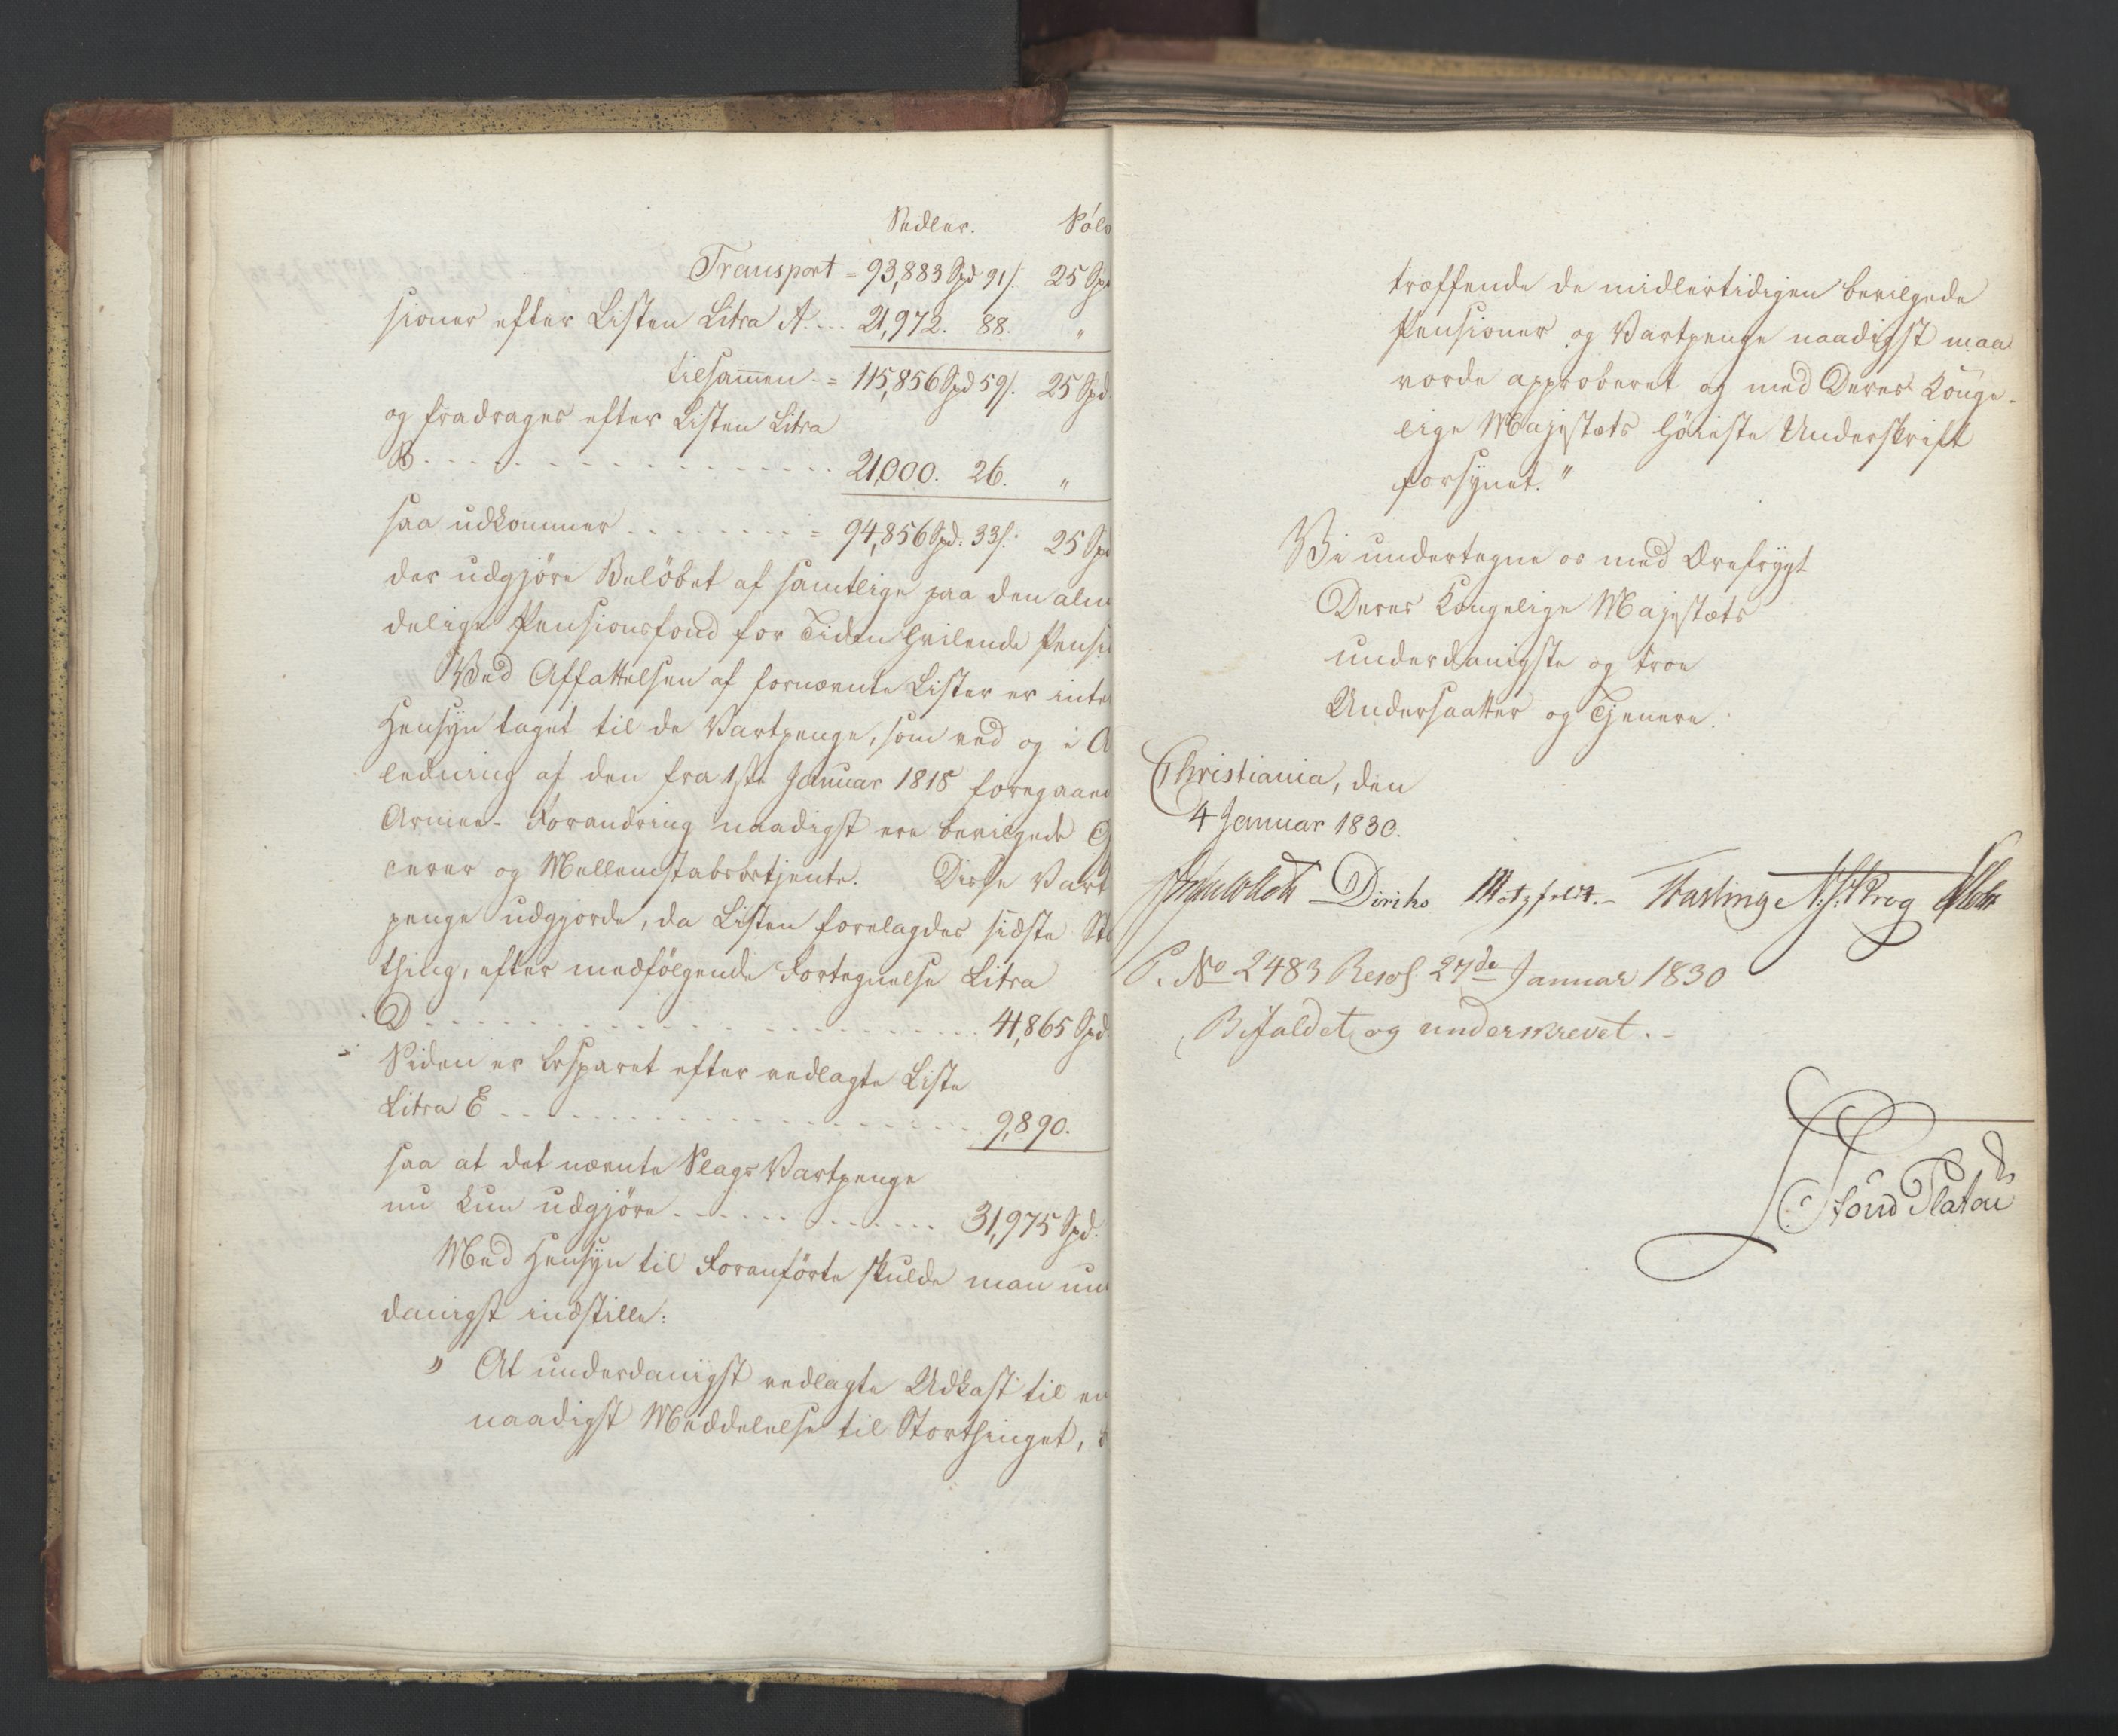 Sedler. Sölv
Transport = 93,883 Spd 91 s. 25 Spd
sioner efter Listen Litra A. ... 21,972. 88. "
tilsam̅en = 115,856 Spd 59 s. 25 Spd.
og fradrages efter Listen Litra
B. - - - - - - - - - - - - 21,000. 26. "
saa udkommer - - - - - - - = 94,856 Spd. 33 s. 25 Spd
der udgjöre Belöbet af samtlige paa den alm
delige Pensionsfond for Tiden hvilende Pensi
Ved Affattelsen af fornævnte Lister er intet
Hensyn taget til de Vartpenge, som ved og i A
ledning af den fra 1ste Januar 1818 foregaaed
Armee-Forandring naadigst ere bevilgede O
cerer og Mellemstabsbetjente. Disse Vart
penge udgjorde, da Listen forelagdes sidste St
thing, efter medfölgende Fortegnelse Litra
D - - - - - - - - - - - - - - - 41,865 Spd.
Siden er besparet efter vedlagte Liste
Litra E - - - - - - - - - - - - - 9,890.
saa at det nævnte Slags Vartpenge
nu kun udgjöre - - - - - - - - - 31,975 Spd.
Med Hensyn til Foranförte skulde man un
danigst indstille:
" At underdanigst vedlagte Udkast til en
naadigst Meddelelse til Storthinget,
træffende de midlertidigen bevilgede
Pensioner og Vartpenge naadigst maa
vorde approberet og med Deres Konge-
lige Majestæts höieste Underskrift
forsynet."
Vi undertegne os med Ærefrygt
Deres Kongelige Majestæts
underdanigste og troe
Undersaatter og Tjenere.
Christiania, den
4 Januar 1830.
Diriks Motzfeldt. - Fasting
P. No 2483 Resol. 27de Januar 1830
Bifaldet og underskrevet. -
Stoud Platou